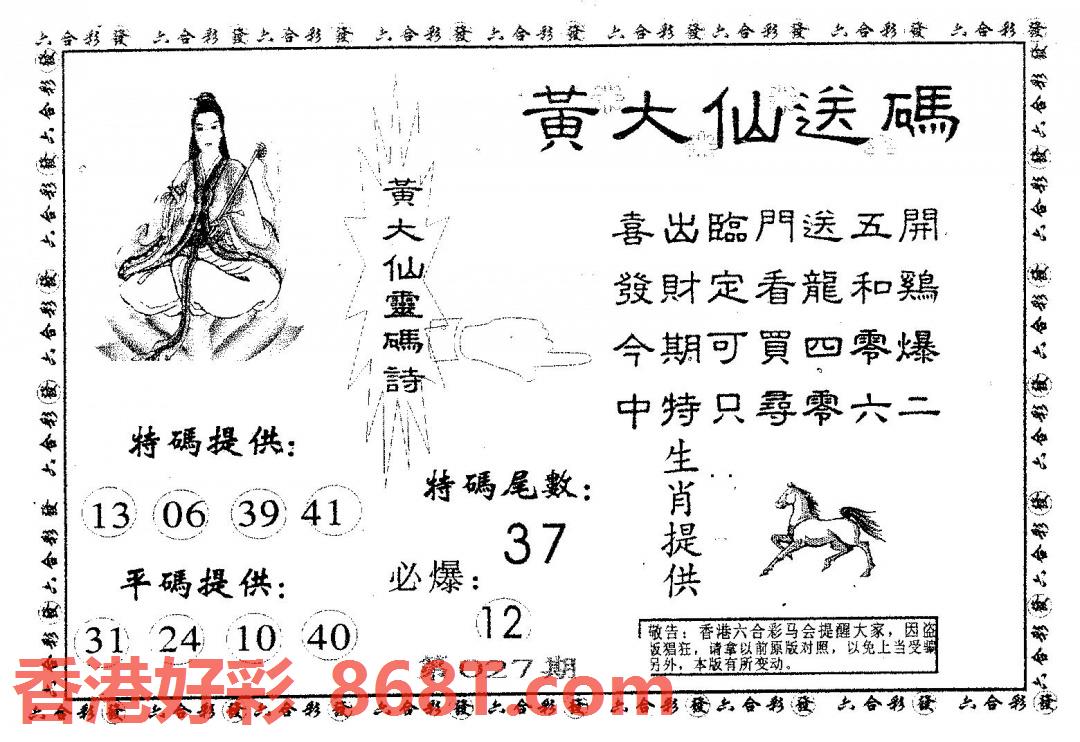 六合彩發 六合彩發 六合彩發 六合彩發 六合彩發 六合彩發 六合彩發 六合彩發 六合彩發
黃大仙送碼
黃大仙靈碼詩
喜出臨門送五開
發財定看龍和鷄
今期可買四零爆
中特只尋零六二
特碼提供：
13 06 39 41
平碼提供：
31 24 10 40
特碼尾數：
37
必爆：
12
生肖提供
敬告：香港六合彩马会提醒大家，因盗
版猖狂，请拿以前原版对照，以免上当受骗
另外，本版有所变动。
第027期
香港好彩 868T.com
六合彩發 六合彩發 六合彩發 六合彩發 六合彩發 六合彩發 六合彩發 六合彩發 六合彩發